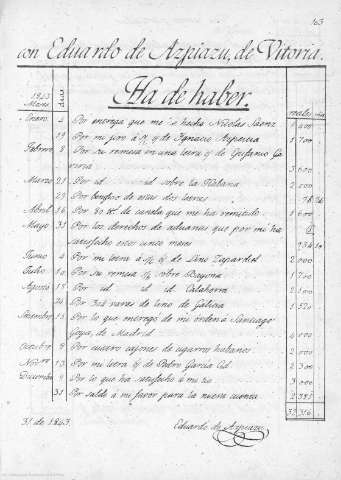 163
con Eduardo de Azpiazu, de Vitoria.
Ha de haber.
1843 Meses días reales
Enero 2 Por entrega que me ha hecho Nicolas Saenz 1 400
19 Por mi giro á o/ de Ignacio Azpeleta 1 700
Febrero 8 Por su remesa en una letra o/ de Gustavo
3 600
Marzo 21 Por id. id. sobre la Habana 2 000
29 Por beneficio de esas dos letras 78 26
Abril 16 Por 80 de canela que me ha remitido 1 600
Mayo 31 Por los derechos de aduanas que por mi ha
satisfecho estos cinco meses
Junio 4 Por mi letra á o/ de Lino Zapardiel 2 000
Julio 10 Por su remesa sobre Bayona 1 700
Agosto 18 Por id id. id. Calahorra 2 100
24 Por 314 varas de lino de Galicia 1 570
Setiembre 15 Por lo que entregó de mi orden á Santiago
Goya, de Madrid 4 000
Octubre 8 Por cuatro cajones de cigarros habanos 2 000
Novbre 13 Por mi letra o/ de Pedro Garcia Cid 2 300
Diciembre 9 Por lo que ha satisfecho á mi tio 3 000
31 Por saldo á mi favor para la nueva cuenta
31 de 1843.
Eduardo de Azpiazu